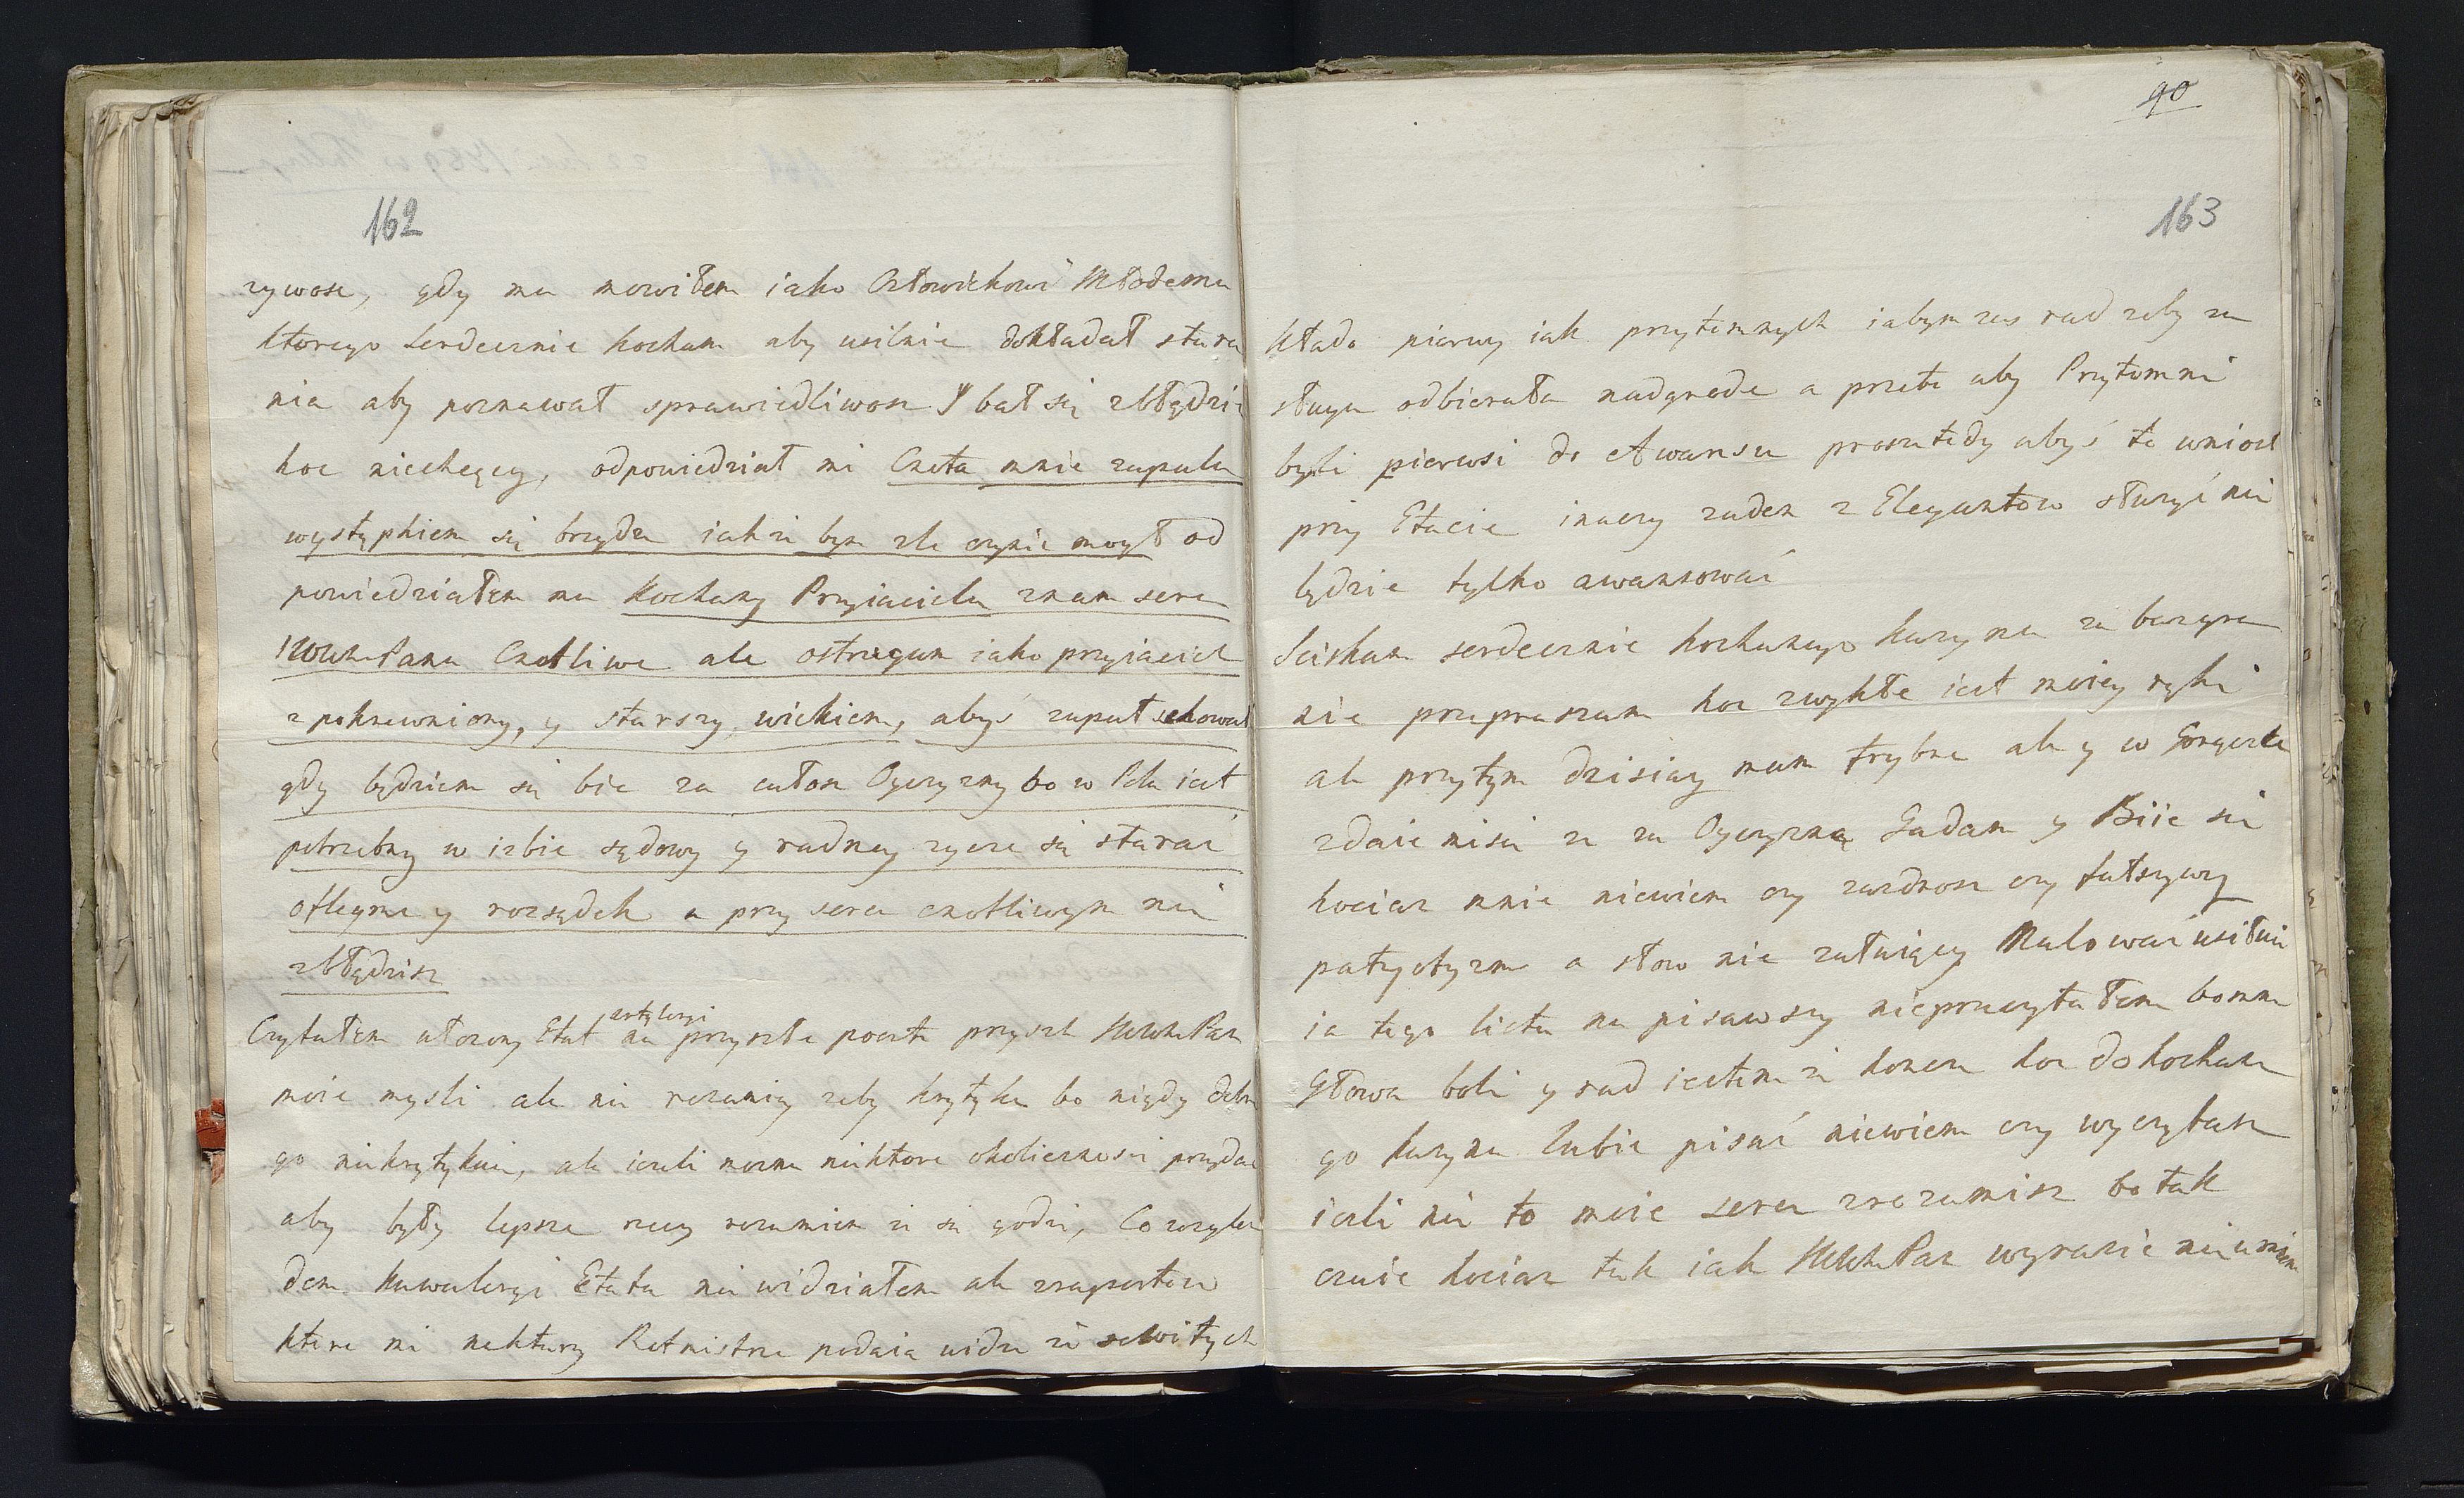 162
zywosc, gdy mu mowiłem iako Człowiekowi Młodemu
ktorego Serdecznie kocham aby usilnie dokładał stara
nia aby poznawał sprawiedliwosc y bał się zbłędzic
hoc niechcący, odpowiedział mi Cnota mnie zapala
występkiem się brzydze iakze bym zle czynic mogł od
powiedziałem mu Kochany Przyiacielu znam serce
WWPana Cnotliwe ale ostrzegam iako przyiaciel
spokrewniony, y starszy wiekiem, abyś zapał schował
gdy będziem się bic za całosc Oyczyzny bo w Polu iest
potrzebny w izbie sądowy y radney zycze się starać
o flegme y rozsądek a przy sercu cnotliwym nie
zbłędzisz
Czytałem ułozony Etat artyleryi na przyszłe poczte przysle WWPanu
moie mysli ale nie rozumiey zeby krytyke bo nigdy dobre
go niekrytykuie, ale iezeli mozna niektore okolicznosci przydac
aby były lepsze rzeczy rozumiem ze się godzi, Co wzglę
dem kawaleryi Etatu nie widziałem ale z raportow
ktore mi niektorzy Rotmistrze podaia widze ze sowitych
90
163
kłada pierwy iak przytomnych iabym zas rad zeby za
sługa odbierała nadgrode a przeto aby Przytomni
byli pierwsi do Awansu prosze tedy abyś to wniosł
przy Etacie inaczy zaden z Elegantow słuzyć nie
będzie tylko awansować
Sciskam serdecznie kochanego kuzyna za bazgra
nie przepraszam hoc zwykłe iest moiey ręki
ale przytym dzisiay mam frybre ale y w Gorączce
zdaie misie ze za Oyczyzną Gadam y Biie sie
hociaz mnie niewiem czy zazdrosc czy fałszywy
patryotyzm a słow nie załuiący Malować usiłuie
ia tego listu na pisawszy nieprzeczytałem bo mnie
Głowa boli y rad iestem ze koncze hoc do kochane
go kuzyna lubie pisać niewiem czy wyczytasz
iezli nie to moie serce zrozumisz bo tak
czuie hociaz tak iak WWPan wyrazic nie umiem